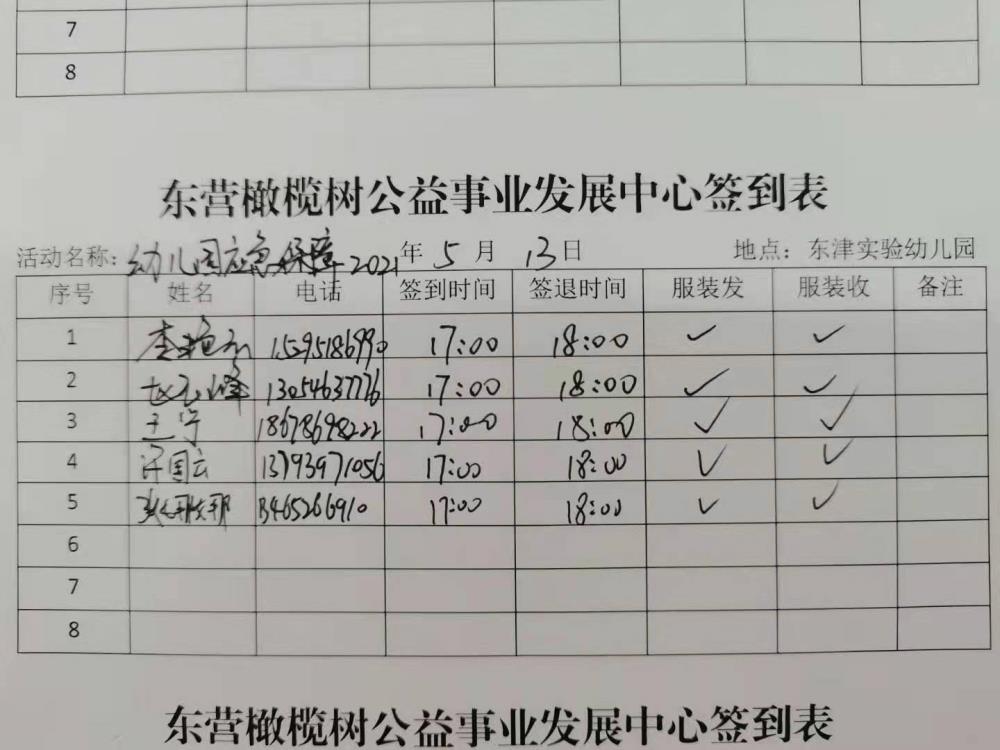 7
8
东营橄榄树公益事业发展中心签到表
活动名称：幼儿园应急保障 2021年 5 月 13 日 地点：东津实验幼儿园
序号 姓名 电话 签到时间 签退时间 服装发 服装收 备注
1 17:00 18:00 ✓ ✓
2 13054637776 17:00 18:00 ✓ ✓
3 王宁 18678698222 17:00 18:00 ✓ ✓
4 许国云 13793971056 17:00 18:00 ✓ ✓
5 13465266910 17:00 18:00 ✓ ✓
6
7
8
东营橄榄树公益事业发展中心签到表